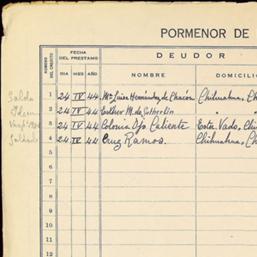 PORMENOR DE
NUMERO DEL CREDITO
FECHA DEL PRESTAMO
DEUDOR
DIA MES AÑO
NOMBRE
DOMICILIO
1 24 IV 44 Ma Luisa Hernández de Chacón Chihuahua, Ch
2 24 IV 44 Esther M. de
3 24 IV 44 Colonia Ojo Caliente Ester Vado, Chi
4 24 IV 44 Cruz Ramos. Chihuahua, Ch
5
6
7
8
9
10
11
12